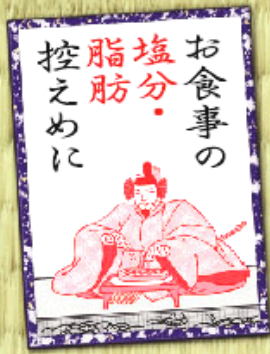 お食事の
塩分・
脂肪
控えめに